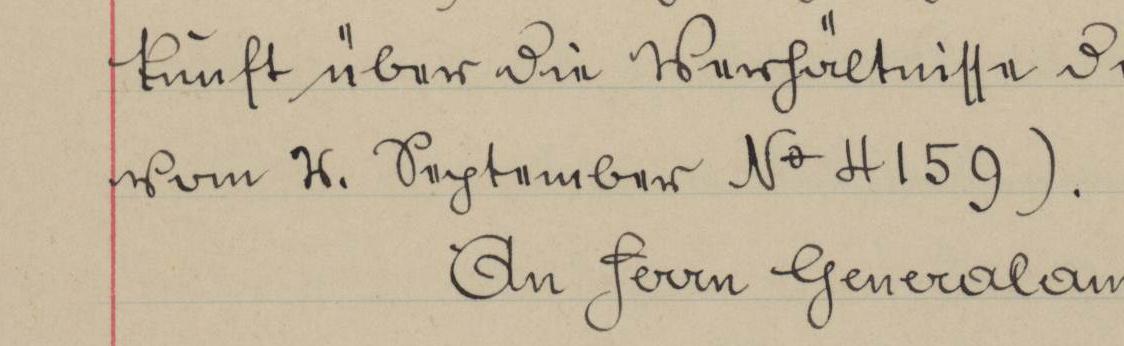 kunft über die Verhältnisse d
vom 4. September No 4159).
An Herrn Generalam